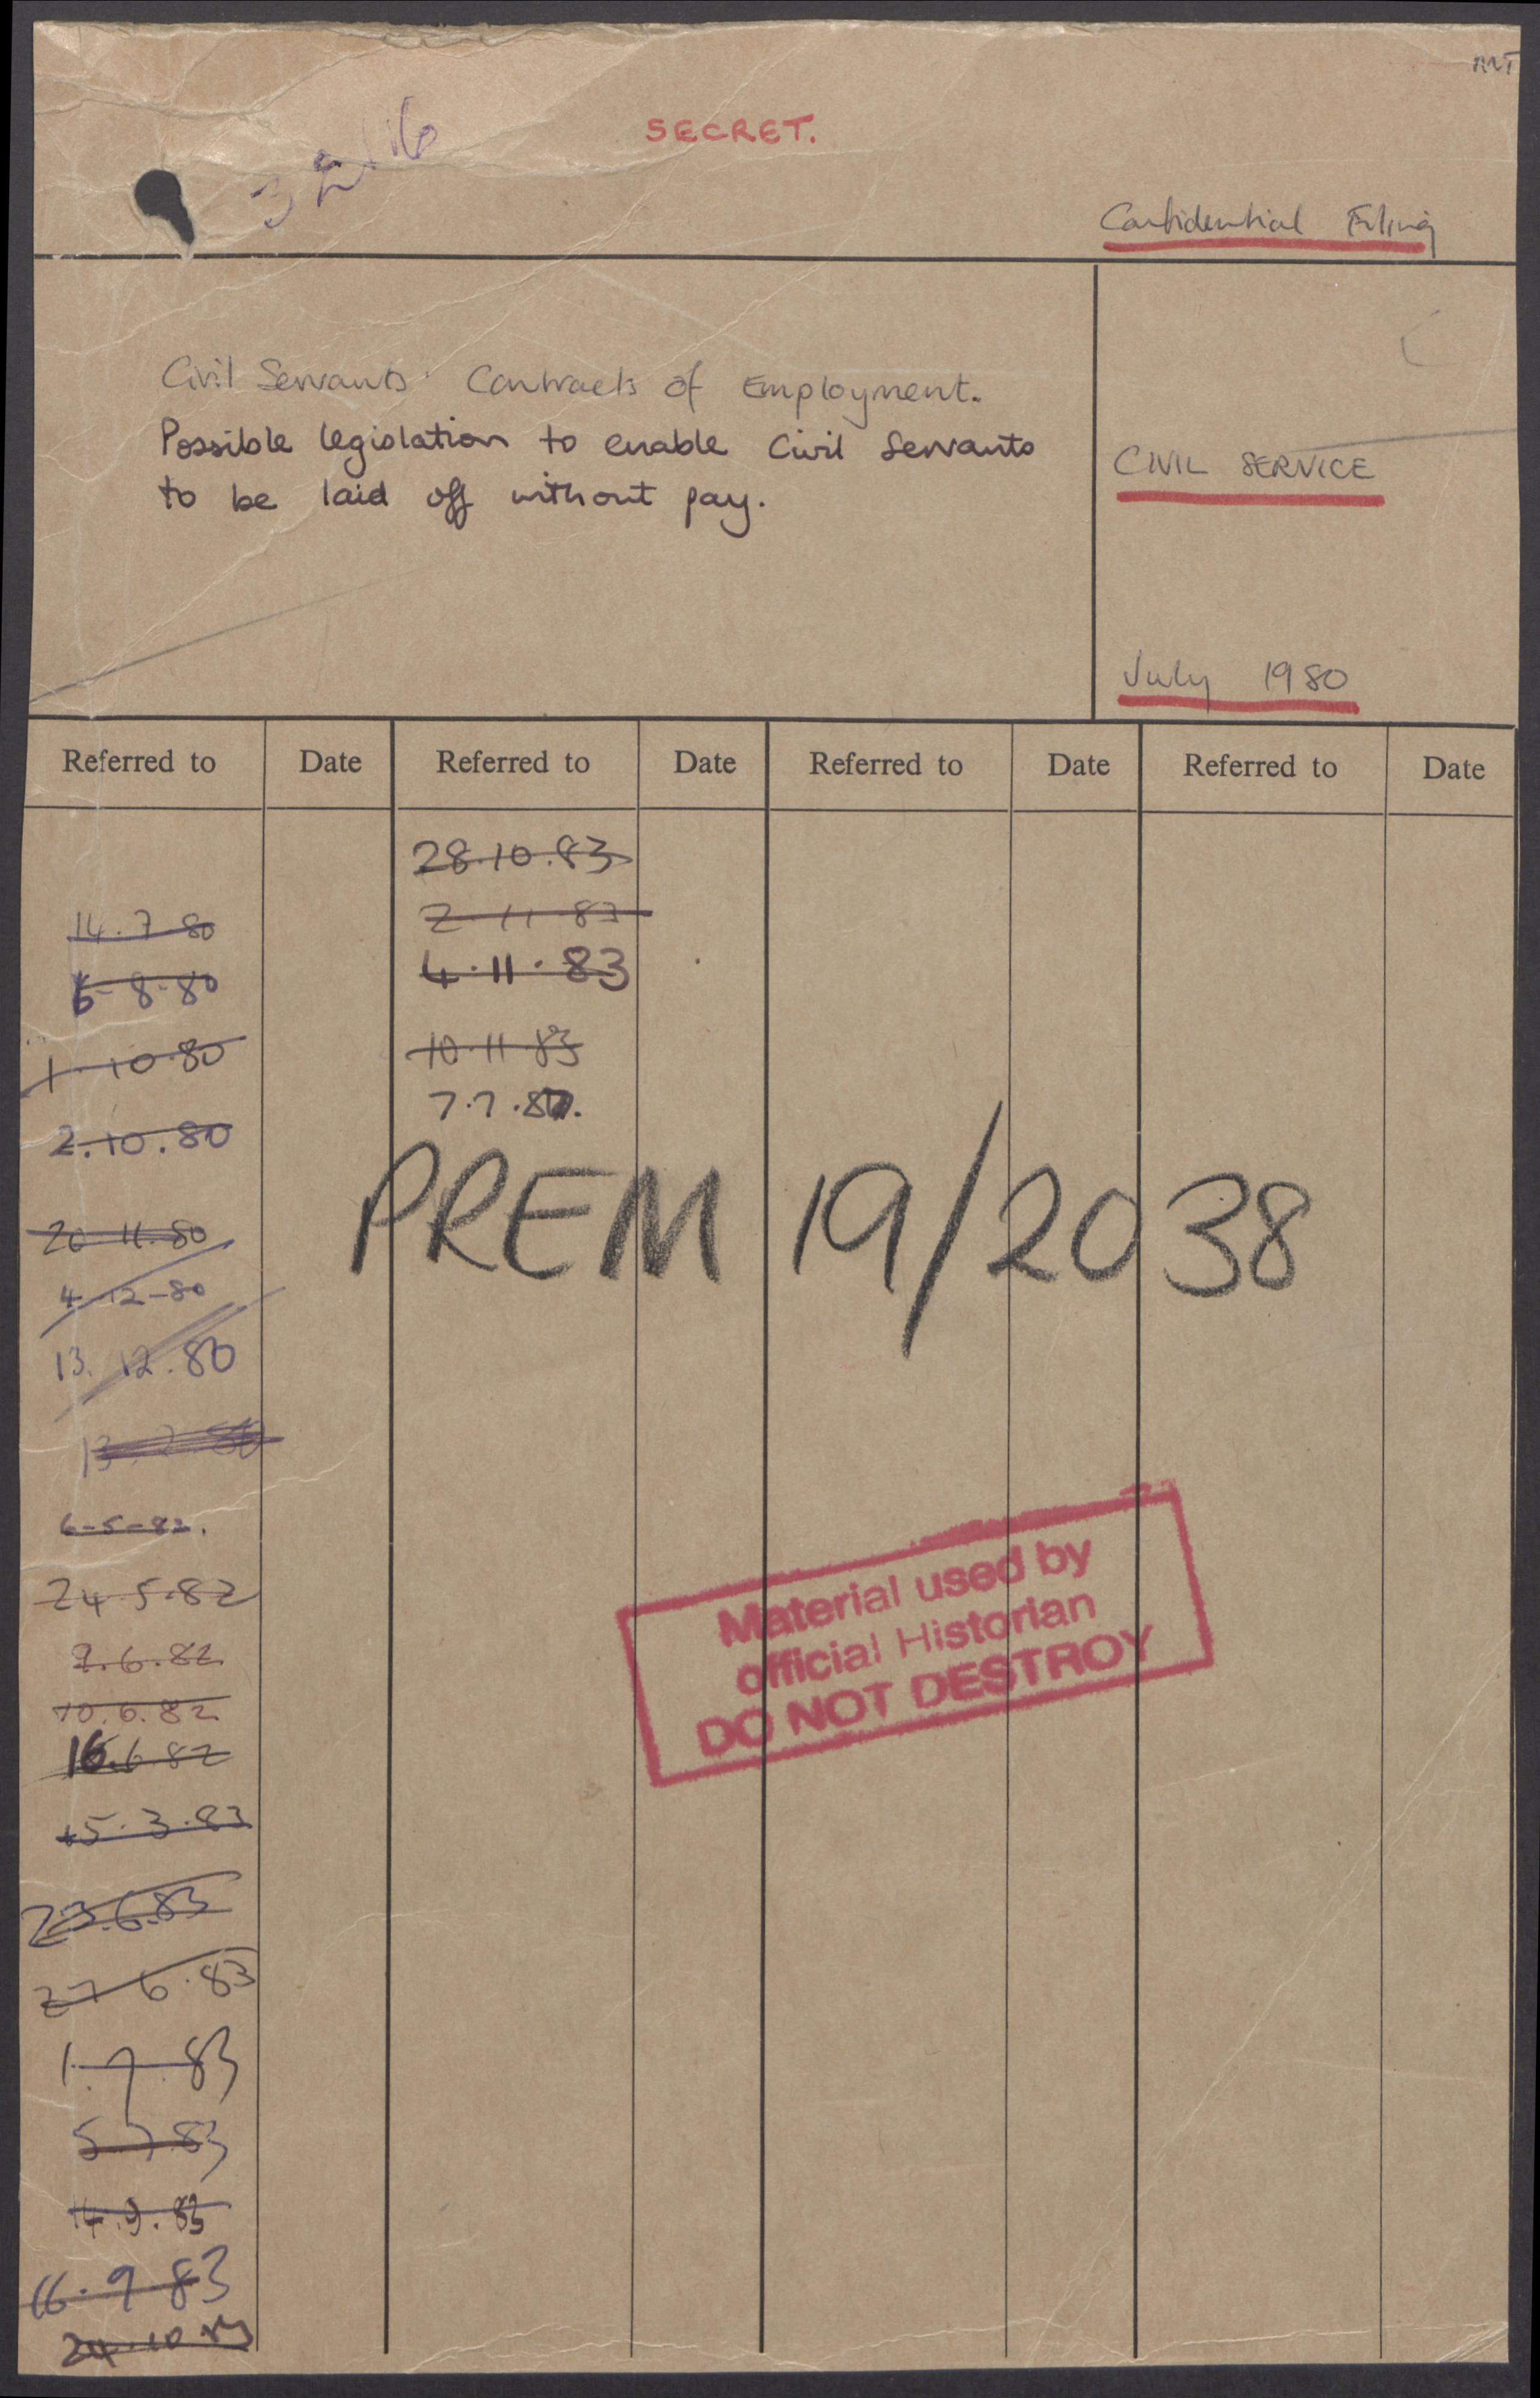 SECRET.
Confidential Filing
Civil Servants' Contracts of Employment.
Possible legislation to enable Civil Servants
to be laid off without pay.
CIVIL SERVICE
July 1980
Referred to Date Referred to Date Referred to Date Referred to Date
14.7.80
6-8-80
1.10.80
2.10.80
20.11.80
4-12-80
13.12.80
6-5-82.
24.5.82
10.6.82
16.6.82
15.3.83
23.6.83
27.6.83
1.7.83
5.7.83
14.9.83
16.9.83
24.10.83
28.10.83
2.11.83
4.11.83
10.11.83
PREM 19/2038
Material used by
official Historian
DO NOT DESTROY